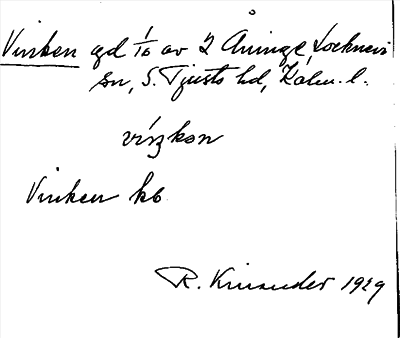 Vinken gd 1/16 av 2 Åninge, Locknevi
sn, S. Tjusts hd, Kalm. l.
Vinken kb
R. Kinander 1929